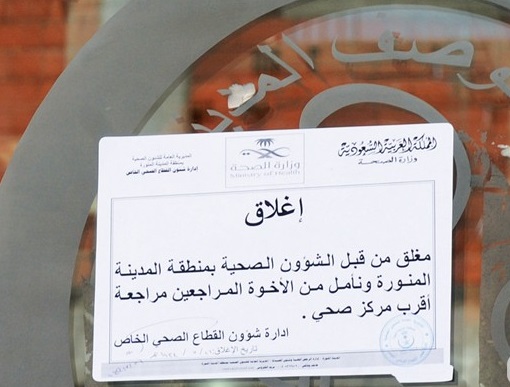 وصف الم
المملكة العربية السعودية
وزارة الصحة
وزارة الصحة
Ministry of Health
المديرية العامة للشؤون الصحية
بمنطقة المدينة المنورة
إدارة شؤون القطاع الصحي الخاص
إغلاق
مغلق من قبل الشؤون الصحية بمنطقة المدينة
المنورة ونأمل من الأخوة المراجعين مراجعة
أقرب مركز صحي .
ادارة شؤون القطاع الصحي الخاص
تاريخ الإغلاق